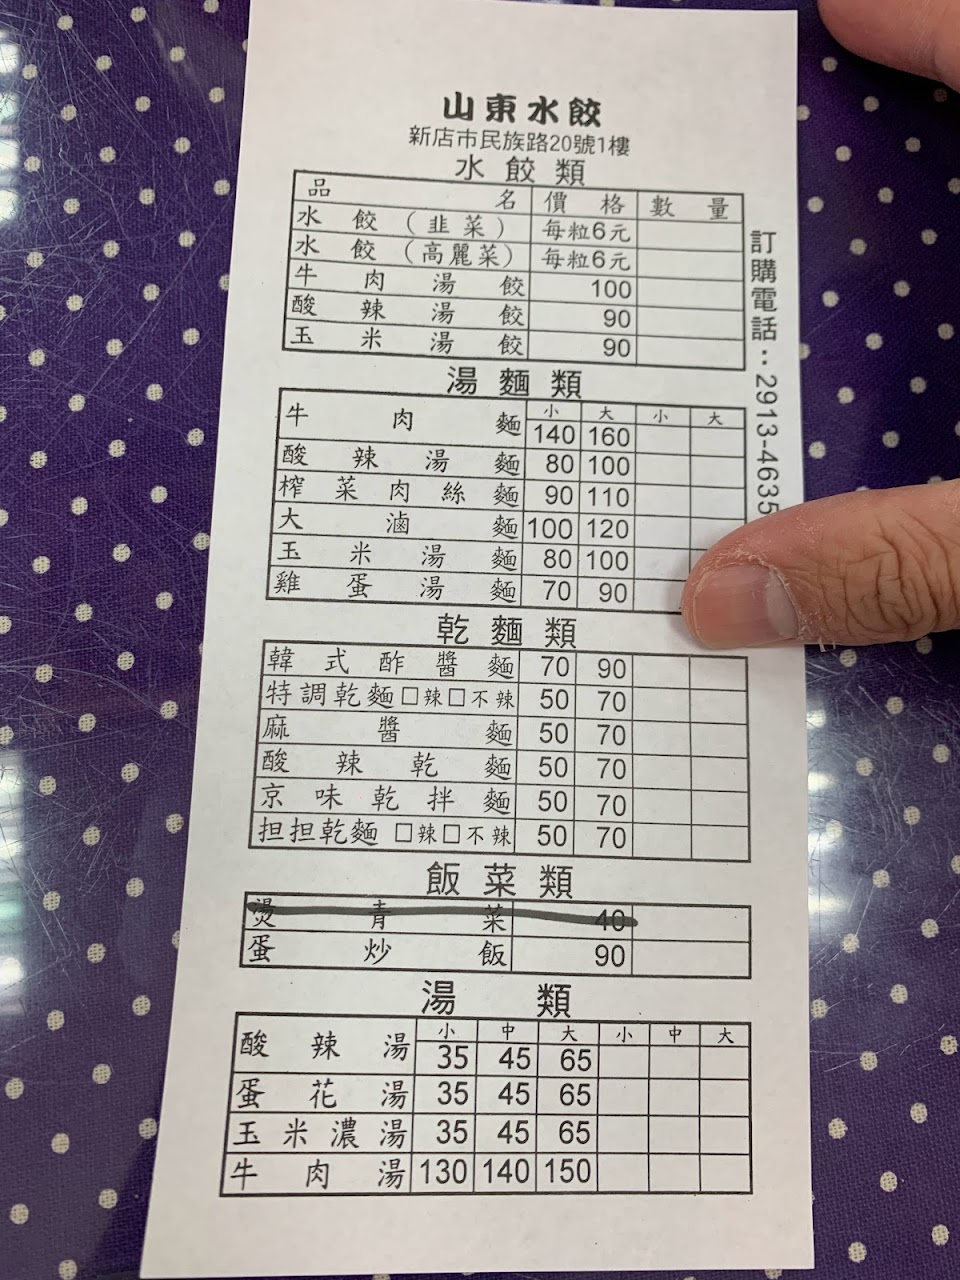 山東水餃
新店市民族路20號1樓
水餃類
品名 價格 數量
水餃（韭菜） 每粒6元
水餃（高麗菜） 每粒6元
牛肉湯餃 100
酸辣湯餃 90
玉米湯餃 90
訂購電話：2913-4635
湯麵類
小 大 小 大
牛肉麵 140 160
酸辣湯麵 80 100
榨菜肉絲麵 90 110
大滷麵 100 120
玉米湯麵 80 100
雞蛋湯麵 70 90
乾麵類
韓式酢醬麵 70 90
特調乾麵□辣□不辣 50 70
麻醬麵 50 70
酸辣乾麵 50 70
京味乾拌麵 50 70
担担乾麵□辣□不辣 50 70
飯菜類
燙青菜 40
蛋炒飯 90
湯類
小 中 大 小 中 大
酸辣湯 35 45 65
蛋花湯 35 45 65
玉米濃湯 35 45 65
牛肉湯 130 140 150